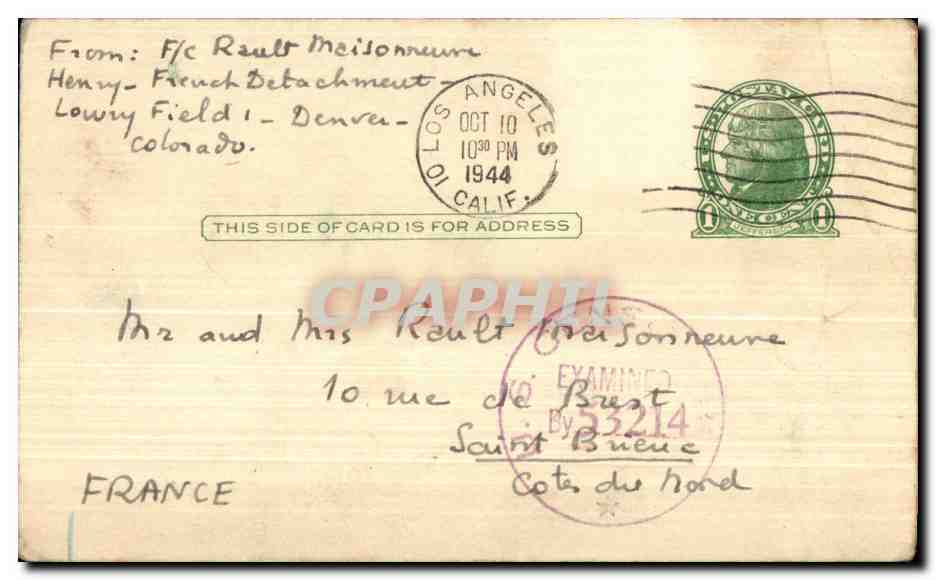 From: F/c Rault Maisonneuve
Henry - French Detachment -
Lowry Field 1 - Denver -
Colorado.
LOS ANGELES
OCT 10
10 30 PM
1944
01 CALIF.
1 1
JEFFERSON
THIS SIDE OF CARD IS FOR ADDRESS
CPAPHIL
Mr and Mrs Rault Maisonneuve
EXAMINED
10 rue de Brest
By 53214
Saint Brieuc
Cotes du Nord
FRANCE